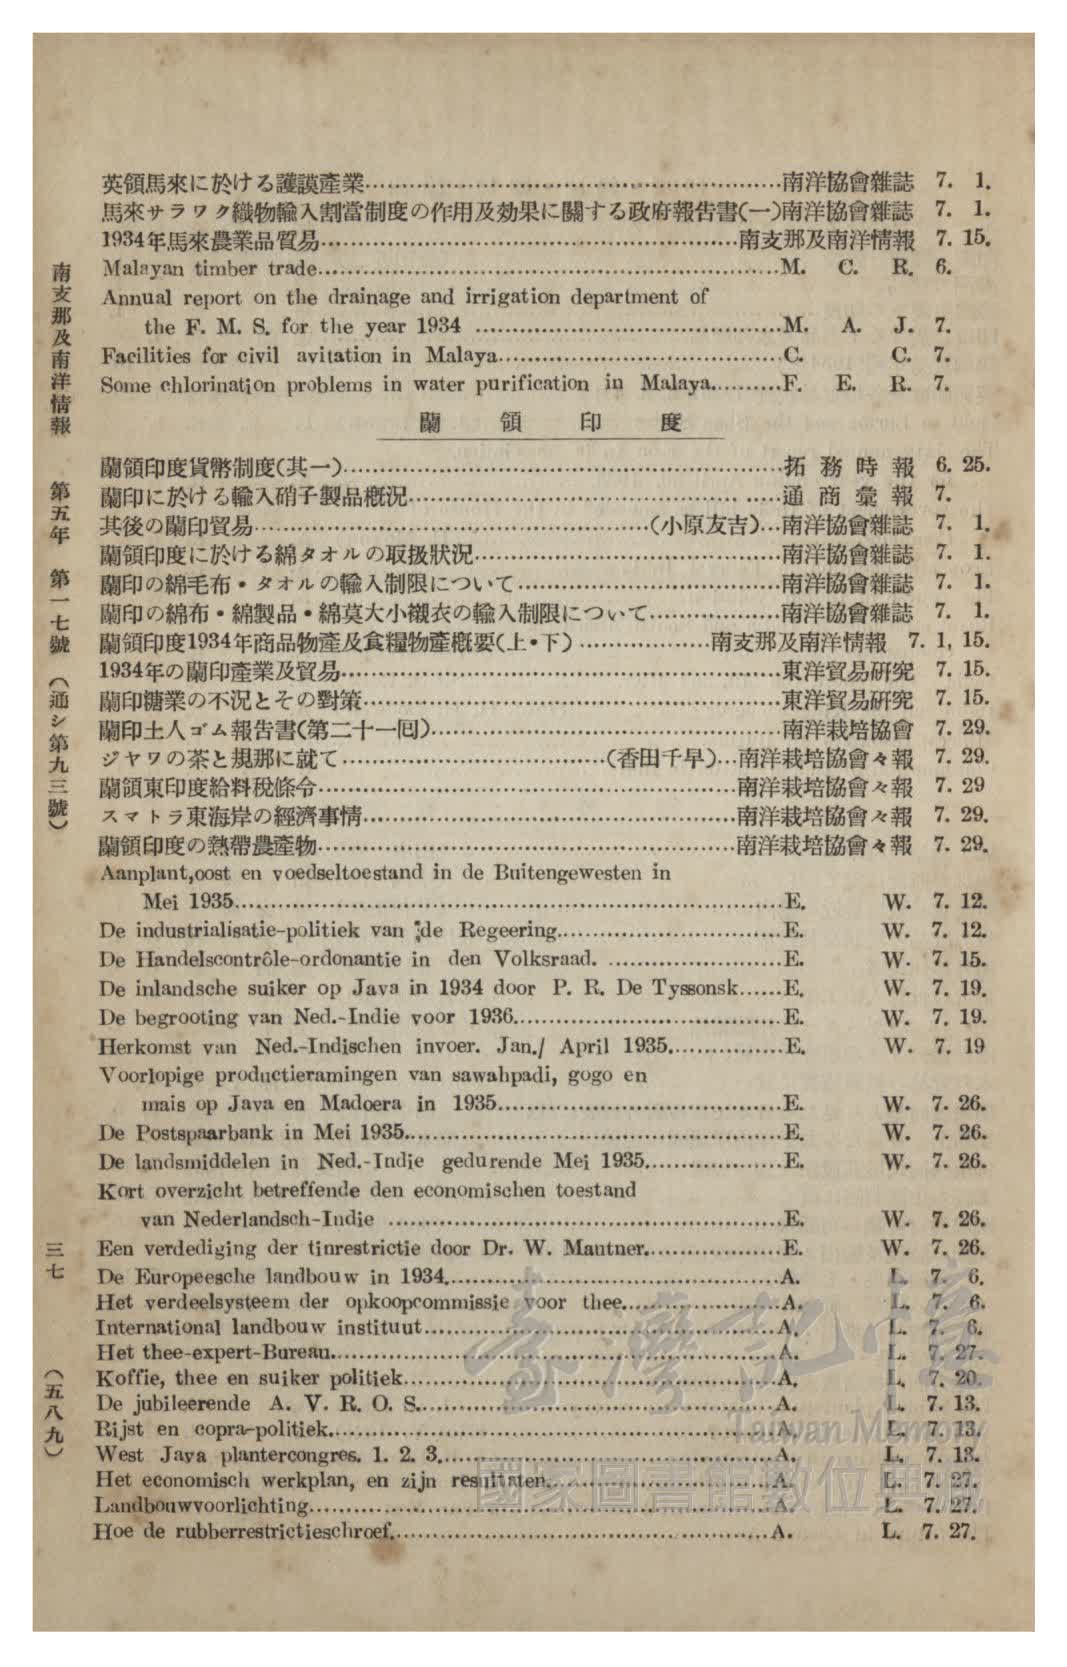 英領馬來に於ける護謨產業……南洋協會雜誌 7. 1.
馬來サラワク織物輸入割當制度の作用及効果に關する政府報告書(一)南洋協會雜誌 7. 1.
1934年馬來農業品貿易……南支那及南洋情報 7. 15.
Malayan timber trade……M. C. R. 6.
Annual report on the drainage and irrigation department of
the F. M. S. for the year 1934 ……M. A. J. 7.
Facilities for civil avitation in Malaya……C. C. 7.
Some chlorination problems in water purification in Malaya……F. E. R. 7.
蘭領印度
蘭領印度貨幣制度(其一)……拓務時報 6. 25.
蘭印に於ける輸入硝子製品槪況……通商彙報 7.
其後の蘭印貿易……(小原友吉)…南洋協會雜誌 7. 1.
蘭領印度に於ける綿タオルの取扱狀況……南洋協會雜誌 7. 1.
蘭印の綿毛布・タオルの輸入制限について……南洋協會雜誌 7. 1.
蘭印の綿布・綿製品・綿莫大小襯衣の輸入制限について……南洋協會雜誌 7. 1.
蘭領印度1934年商品物產及食糧物產槪要(上・下)……南支那及南洋情報 7. 1, 15.
1934年の蘭印產業及貿易……東洋貿易硏究 7. 15.
蘭印糖業の不況とその對策……東洋貿易硏究 7. 15.
蘭印土人ゴム報告書(第二十一囘)……南洋栽培協會 7. 29.
ジヤワの茶と規那に就て……(香田千早)…南洋栽培協會々報 7. 29.
蘭領東印度給料稅條令……南洋栽培協會々報 7. 29
スマトラ東海岸の經濟事情……南洋栽培協會々報 7. 29.
蘭領印度の熱帶農產物……南洋栽培協會々報 7. 29.
Aanplant,oost en voedseltoestand in de Buitengewesten in
Mei 1935……E. W. 7. 12.
De industrialisatie-politiek van de Regeering……E. W. 7. 12.
De Handelscontrôle-ordonantie in den Volksraad. ……E. W. 7. 15.
De inlandsche suiker op Java in 1934 door P. R. De Tyssonsk……E. W. 7. 19.
De begrooting van Ned.-Indie voor 1936……E. W. 7. 19.
Herkomst van Ned.-Indischen invoer. Jan./ April 1935……E. W. 7. 19
Voorlopige productieramingen van sawahpadi, gogo en
mais op Java en Madoera in 1935……E. W. 7. 26.
De Postspaarbank in Mei 1935……E. W. 7. 26.
De landsmiddelen in Ned.-Indie gedurende Mei 1935……E. W. 7. 26.
Kort overzicht betreffende den economischen toestand
van Nederlandsch-Indie ……E. W. 7. 26.
Een verdediging der tinrestrictie door Dr. W. Mautner……E. W. 7. 26.
De Europeesche landbouw in 1934……A. L. 7. 6.
Het verdeelsysteem der opkoopcommissie voor thee……A. L. 7. 6.
International landbouw instituut……A. L. 7. 6.
Het thee-expert-Bureau……A. L. 7. 27.
Koffie, thee en suiker politiek……A. L. 7. 20.
De jubileerende A. V. R. O. S……A. L. 7. 13.
Rijst en copra-politiek……A. L. 7. 13.
West Java plantercongres. 1. 2. 3……A. L. 7. 13.
Het economisch werkplan, en zijn resultaten……A. L. 7. 27.
Landbouwvoorlichting……A. L. 7. 27.
Hoe de rubberrestrictieschroef……A. L. 7. 27.
南支那及南洋情報 第五年 第一七號 (通シ第九三號) 三七 (五八九)
臺灣記憶
Taiwan Memory
國家圖書館數位典藏